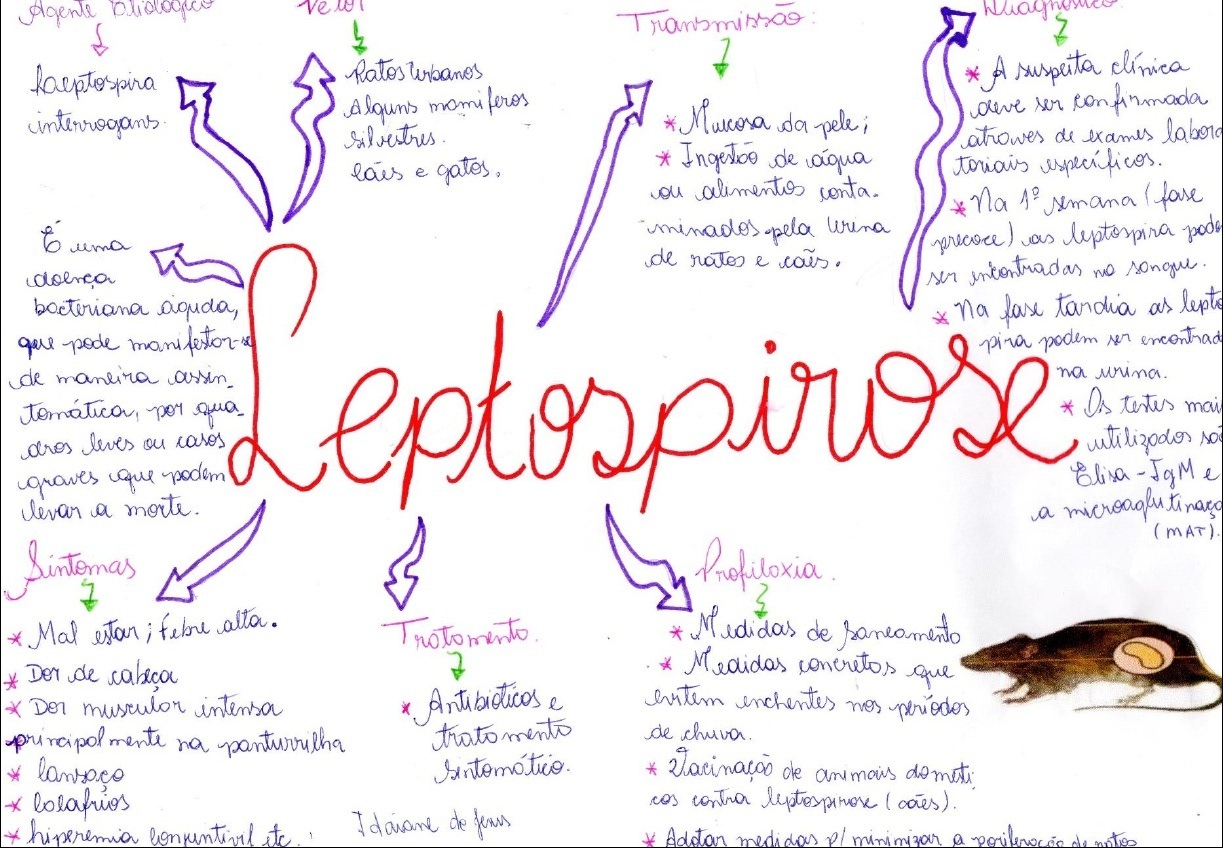 Agente Etiológico
Leptospira
interrogans.
Vetor
Ratos Urbanos
Alguns mamiferos
silvestres.
Cães e gatos.
Transmissão:
* Mucosa da pele;
* Ingestão de água
ou alimentos conta-
minados pela urina
de ratos e cães.
Diagnóstico
* A suspeita clínica
deve ser confirmada
atraves de exames labora
toriais específicos.
* Na 1ª semana (fase
precoce) as leptospira pode
ser encontradas no sangue.
* Na fase tardia as lepto
pira podem ser encontrad
na urina.
* Os testes mais
utilizados são
Elisa - IgM e
a microaglutinaç
(MAT).
É uma
doença
bacteriana aguda,
que pode manifestar-se
de maneira assin_
tomática, por qua_
dros leves ou casos
graves que podem
levar a morte.
Leptospirose
Sintomas
* Mal estar; Febre alta.
* Dor de cabeça
* Dor muscular intensa
principalmente na panturrilha
* Cansaço
* Calafrios
* hiperemia Conjuntivil etc.
Tratamento.
* Antibióticos e
tratamento
sintomático.
Idaiane de Jesus
Profilaxia.
* Medidas de Saneamento
* Medidas concretas que
evitem enchentes nos períodos
de chuva.
* Vacinação de animais domesti
cos contra leptospirose (cães).
* Adotar medidas p/ minimizar a poriferação de ratos